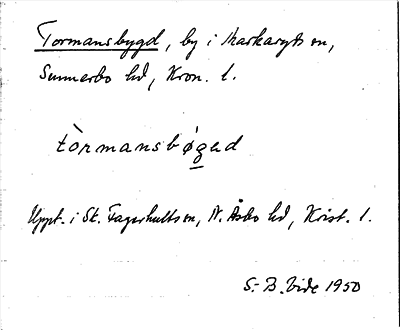 Tormansbygd, by i Markaryds sn,
Sunnerbo hd, Kron. l.
tòrmansbǿgad
Uppt. i Sk. Fagerhults sn, N. Åsbo hd, Krist. l.
S.-B. Vide 1950